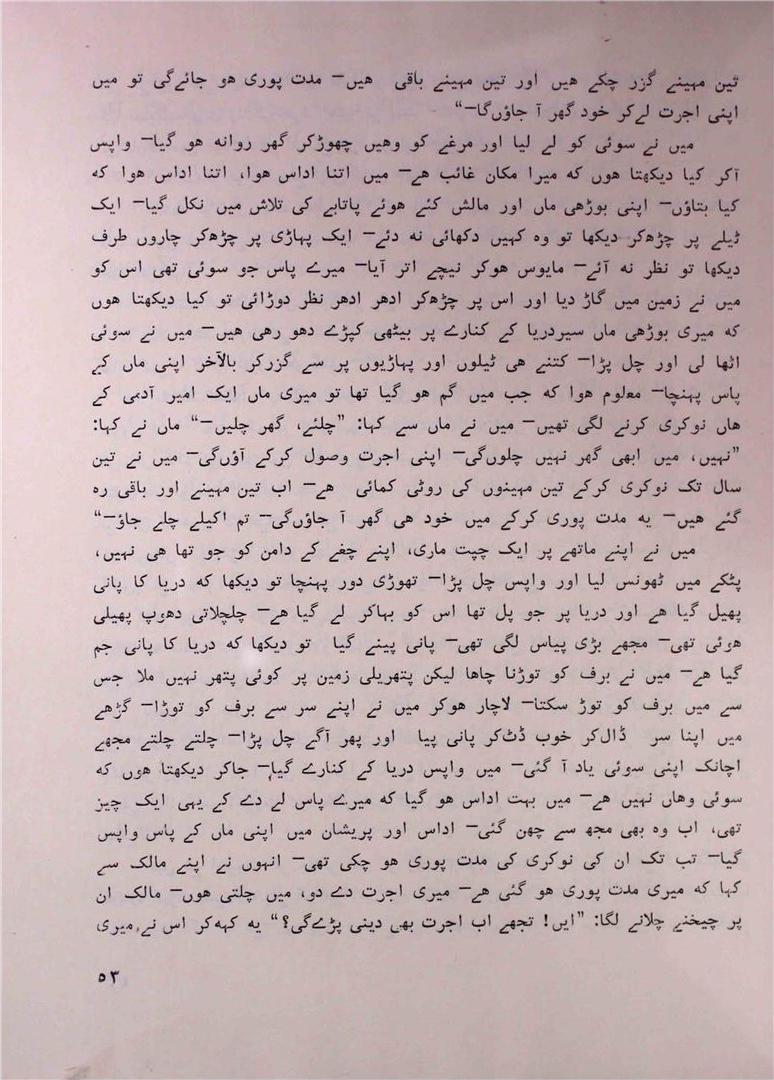 تین مہینے گزر چکے ھیں اور تین مہینے باقی ھیں— مدت پوری ھو جائےگی تو میں
اپنی اجرت لےکر خود گھر آ جاؤںگا—“
میں نے سوئی کو لے لیا اور مرغے کو وھیں چھوڑکر گھر روانہ ھو گیا— واپس
آکر کیا دیکھتا ھوں کہ میرا مکان غائب ھے— میں اتنا اداس ھوا، اتنا اداس ھوا کہ
کیا بتاؤں— اپنی بوڑھی ماں اور مالش کئے ھوئے پاتابے کی تلاش میں نکل گیا— ایک
ٹیلے پر چڑھکر دیکھا تو وہ کہیں دکھائی نہ دئے— ایک پہاڑی پر چڑھکر چاروں طرف
دیکھا تو نظر نہ آئے— مایوس ھوکر نیچے اتر آیا— میرے پاس جو سوئی تھی اس کو
میں نے زمین میں گاڑ دیا اور اس پر چڑھکر ادھر ادھر نظر دوڑائی تو کیا دیکھتا ھوں
کہ میری بوڑھی ماں سیردریا کے کنارے پر بیٹھی کپڑے دھو رھی ھیں— میں نے سوئی
اٹھا لی اور چل پڑا— کتنے ھی ٹیلوں اور پہاڑیوں پر سے گزرکر بالآخر اپنی ماں کے
پاس پہنچا— معلوم ھوا کہ جب میں گم ھو گیا تھا تو میری ماں ایک امیر آدمی کے
ھاں نوکری کرنے لگی تھیں— میں نے ماں سے کہا: ”چلئے، گھر چلیں—“ ماں نے کہا:
”نہیں، میں ابھی گھر نہیں چلوںگی— اپنی اجرت وصول کرکے آؤںگی— میں نے تین
سال تک نوکری کرکے تین مہینوں کی روٹی کمائی ھے— اب تین مہینے اور باقی رہ
گئے ھیں— یہ مدت پوری کرکے میں خود ھی گھر آ جاؤںگی— تم اکیلے چلے جاؤ—“
میں نے اپنے ماتھے پر ایک چپت ماری، اپنے چغے کے دامن کو جو تھا ھی نہیں،
پٹکے میں ٹھونس لیا اور واپس چل پڑا— تھوڑی دور پہنچا تو دیکھا کہ دریا کا پانی
پھیل گیا ھے اور دریا پر جو پل تھا اس کو بہاکر لے گیا ھے— چلچلاتی دھوپ پھیلی
ھوئی تھی— مجھے بڑی پیاس لگی تھی— پانی پینے گیا تو دیکھا کہ دریا کا پانی جم
گیا ھے— میں نے برف کو توڑنا چاھا لیکن پتھریلی زمین پر کوئی پتھر نہیں ملا جس
سے میں برف کو توڑ سکتا— لاچار ھوکر میں نے اپنے سر سے برف کو توڑا— گڑھے
میں اپنا سر ڈالکر خوب ڈٹکر پانی پیا اور پھر آگے چل پڑا— چلتے چلتے مجھے
اچانک اپنی سوئی یاد آ گئی— میں واپس دریا کے کنارے گیا— جاکر دیکھتا ھوں کہ
سوئی وھاں نہیں ھے— میں بہت اداس ھو گیا کہ میرے پاس لے دے کے یہی ایک چیز
تھی، اب وہ بھی مجھ سے چھن گئی— اداس اور پریشان میں اپنی ماں کے پاس واپس
گیا— تب تک ان کی نوکری کی مدت پوری ھو چکی تھی— انہوں نے اپنے مالک سے
کہا کہ میری مدت پوری ھو گئی ھے— میری اجرت دے دو، میں چلتی ھوں— مالک ان
پر چیخنے چلانے لگا: ”ایں! تجھے اب اجرت بھی دینی پڑےگی؟“ یہ کہہکر اس نے میری
۵۳